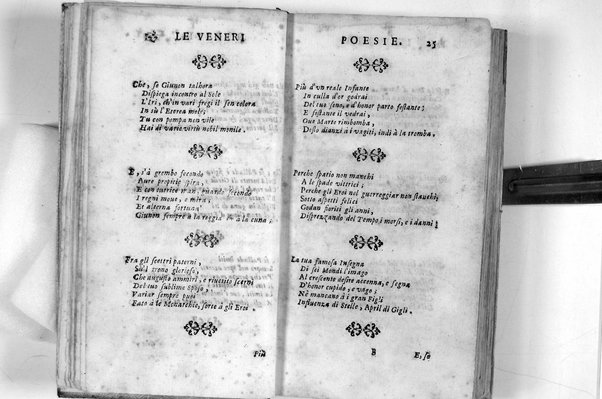 LE VENERI
Che, se Giunon talhora
Dispiega incontro al Sole
L'Iri, ch'in vari fregi il sen colora
In sù l'Eterea mole;
Tu con pompa non vile
Hai di varie virtù nobil monile.
E, s'à grembo fecondo
Aure propitie spira,
E con nutrice man, quando fecondo
I regni move, e mira,
Et alterna fortuna
Giunon sempre à la reggia
Fra gli scettri paterni,
Sù'l trono glorioso,
Che augusto ammiri, e riverito scerni
Del tuo sublime Sposo,
Variar sempre puoi
Fato à le Monarchie, sorte à gli Eroi.
Più
POESIE. 25
Più d'vn reale Infante
In culla d'or godrai
Del tuo seno, e d'honor parto festante;
E festante il vedrai,
Que Marte rimbomba,
Desto dianzi à i vagiti, indi à la tromba.
Perche spatio non manchi
A le spade vittrici;
Perche gli Eroi nel guerreggiar non stanchi,
Sotto aspetti felici
Godan fioriti gli anni,
Disprezzando del Tempo i morsi, e i danni;
La tua famosa Insegna
Di sei Mondi l'imago
Al crescente desire accenna, e segna
D'honor cupido, e vago;
Nè mancano à i gran Figli
Influenza di Stelle, April di Gigli.
B E, se